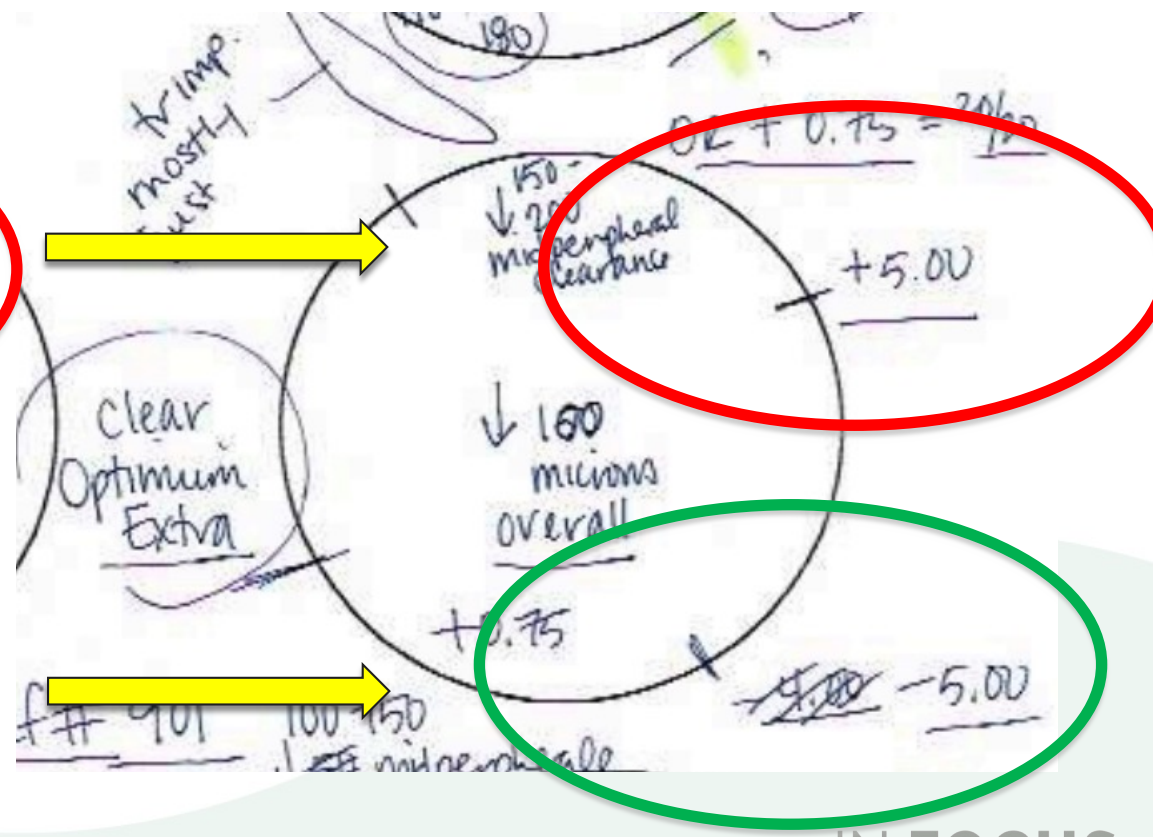 180
tr imp.
mostly
OR + 0.75 = 20/20
150 -
↓ 200
midperipheral
clearance
+5.00
Clear
Optimum
Extra
↓ 100
microns
overall
+0.75
-5.00
f# 901
100 150
IN FOCUS